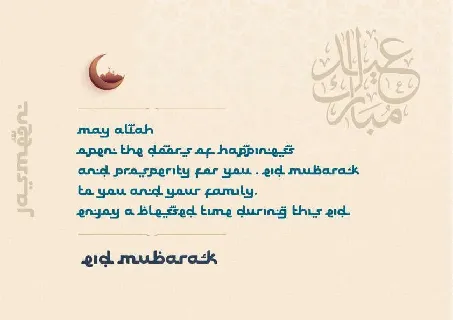 عيد
مبارك
may allah
open the doors of happiness
and prosperity for you . eid mubarak
to you and your family.
enjoy a blessed time during this eid
eid mubarak
jasmeen